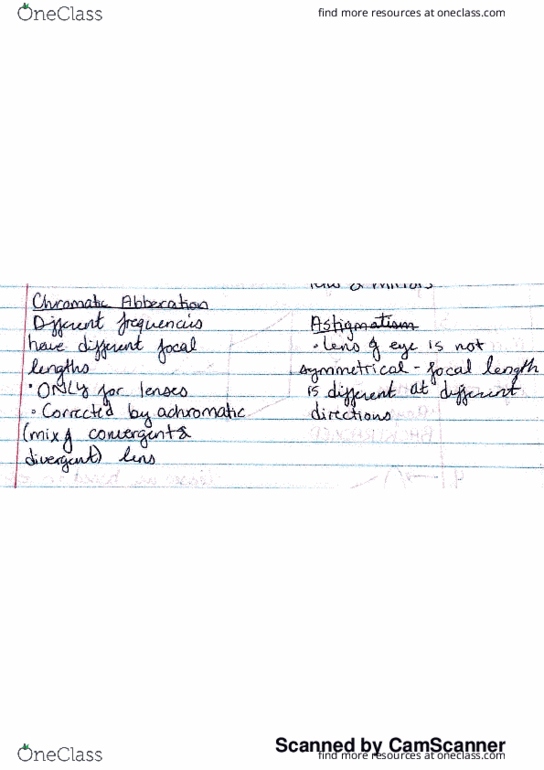 OneClass
find more resources at oneclass.com
Chromatic Abberation
Different frequencies
have different focal
lengths
• ONLY for lenses
• Corrected by achromatic
(mix of convergent &
divergent) lens
Astigmatism
• Lens of eye is not
symmetrical - focal length
is different at different
directions
Scanned by CamScanner
OneClass
find more resources at oneclass.com